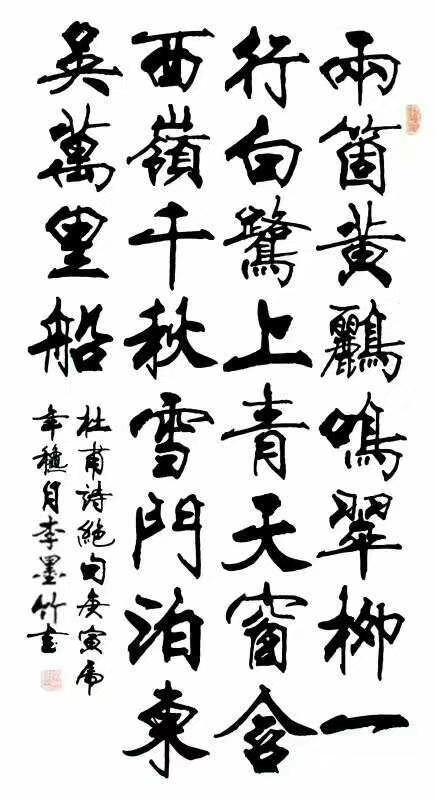 兩箇黃鸝鳴翠柳一
行白鷺上青天窗含
西嶺千秋雪門泊東
吳萬里船
杜甫詩絕句庚寅虎
年穐月李墨竹书